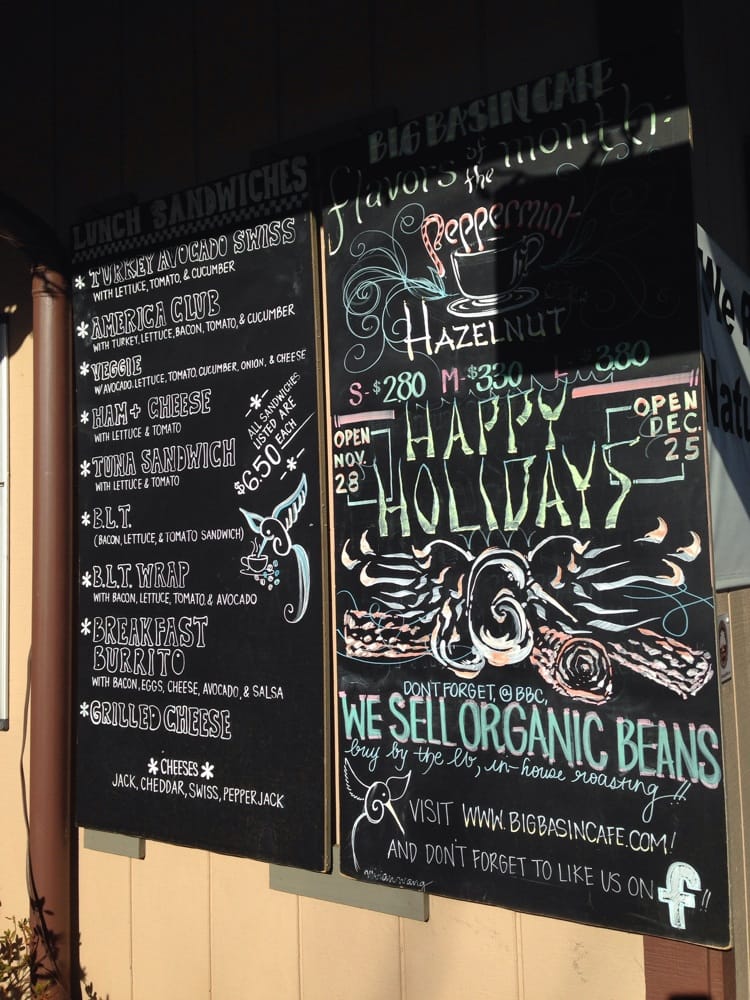 LUNCH SANDWICHES
* TURKEY AVOCADO SWISS
WITH LETTUCE, TOMATO, & CUCUMBER
* AMERICA CLUB
WITH TURKEY, LETTUCE, BACON, TOMATO, & CUCUMBER
* VEGGIE
W/ AVOCADO, LETTUCE, TOMATO, CUCUMBER, ONION, & CHEESE
* HAM + CHEESE
WITH LETTUCE & TOMATO
* TUNA SANDWICH
WITH LETTUCE & TOMATO
* B.L.T.
(BACON, LETTUCE, & TOMATO SANDWICH)
* B.L.T. WRAP
WITH BACON, LETTUCE, TOMATO, & AVOCADO
* BREAKFAST
BURRITO
WITH BACON, EGGS, CHEESE, AVOCADO, & SALSA
* GRILLED CHEESE
* CHEESES *
JACK, CHEDDAR, SWISS, PEPPERJACK
*
ALL SANDWICHES
LISTED ARE
$6.50 EACH
*
BIG BASIN CAFE
flavors of the month:
Peppermint
HAZELNUT
S-$2.80 M-$3.30 L-$3.80
HAPPY
HOLIDAYS
OPEN
NOV.
28
OPEN
DEC
25
DON'T FORGET, @ BBC,
WE SELL ORGANIC BEANS
buy by the lb, in-house roasting!!
VISIT WWW.BIGBASINCAFE.COM!
AND DON'T FORGET TO LIKE US ON f!!
vivian wang
We
Natu